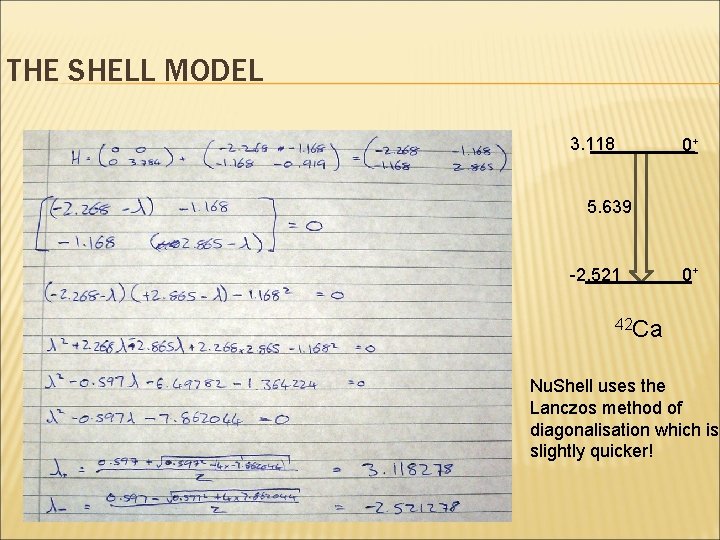 THE SHELL MODEL
H = (0 0 / 0 3.784) + (-2.268 -1.168 / -1.168 -0.919) = (-2.268 -1.168 / -1.168 2.865)
(-2.268 - λ) -1.168
-1.168 (2.865 - λ) = 0
(-2.268-λ)(+2.865-λ) - 1.168² = 0
λ² + 2.268λ - 2.865λ + 2.268×2.865 - 1.168² = 0
λ² - 0.597λ - 6.49782 - 1.364224 = 0
λ² - 0.597λ - 7.862044 = 0
λ₊ = 0.597 + √(0.597² - 4×-7.862044) / 2 = 3.118278
λ₋ = 0.597 - √(0.597² + 4×7.862044) / 2 = -2.521278
3.118 0⁺
5.639
-2.521 0⁺
⁴²Ca
Nu.Shell uses the
Lanczos method of
diagonalisation which is
slightly quicker!